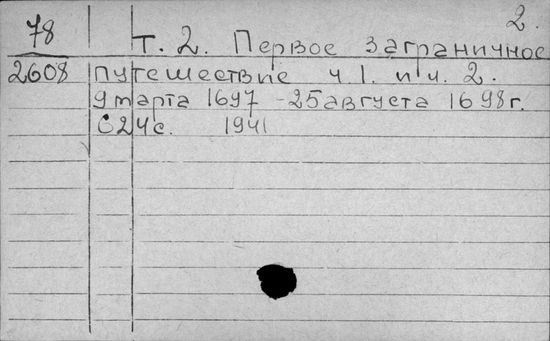 2.
78 Т. 2. Первое заграничное
2608 путешествие ч 1. и ч. 2.
9 марта 1697 - 25 августа 1698 г.
624 с. 1941